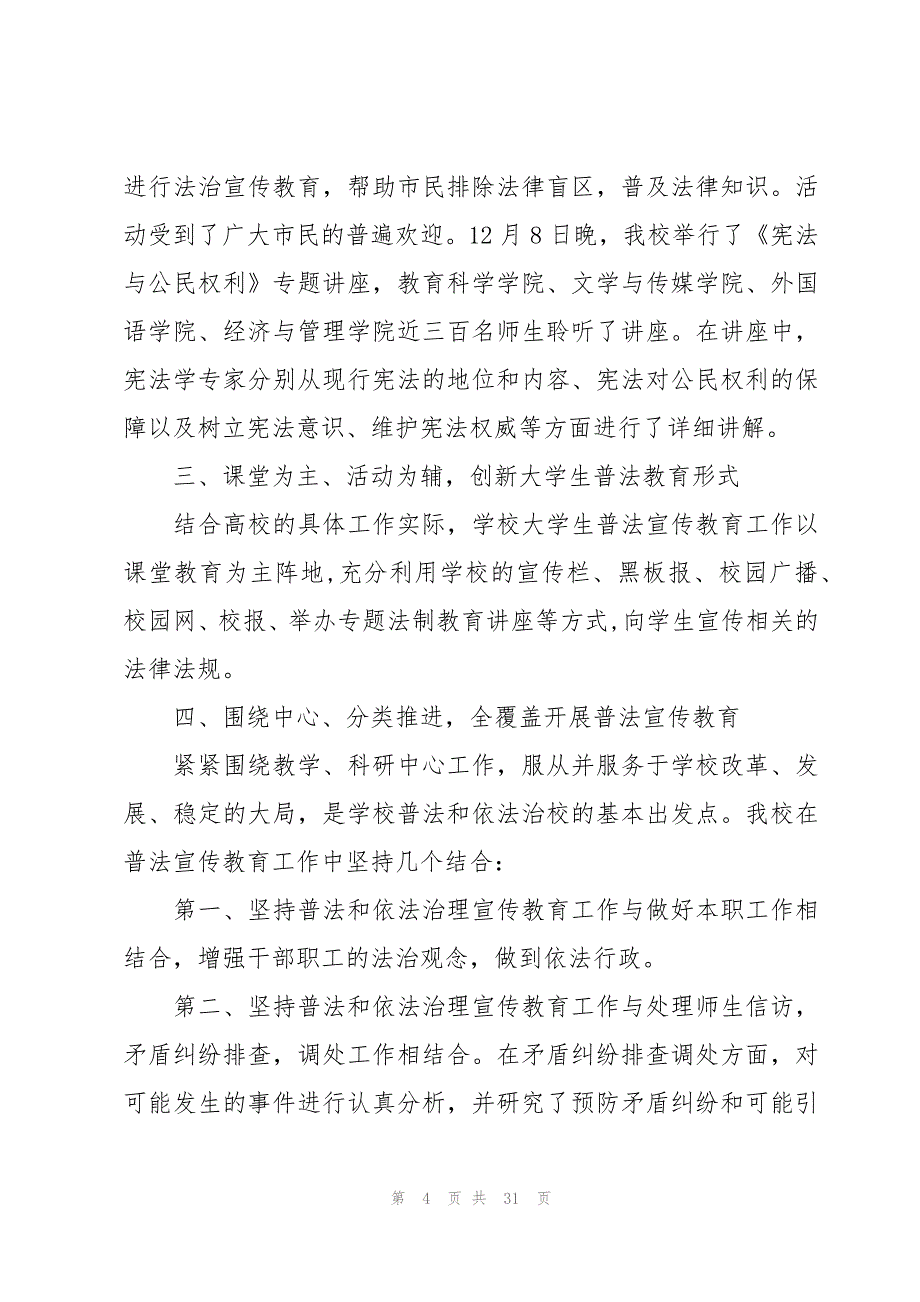 进行法治宣传教育，帮助市民排除法律盲区，普及法律知识。活
动受到了广大市民的普遍欢迎。12 月 8 日晚，我校举行了《宪法
与公民权利》专题讲座，教育科学学院、文学与传媒学院、外国
语学院、经济与管理学院近三百名师生聆听了讲座。在讲座中，
宪法学专家分别从现行宪法的地位和内容、宪法对公民权利的保
障以及树立宪法意识、维护宪法权威等方面进行了详细讲解。
三、课堂为主、活动为辅，创新大学生普法教育形式
结合高校的具体工作实际，学校大学生普法宣传教育工作以
课堂教育为主阵地,充分利用学校的宣传栏、黑板报、校园广播、
校园网、校报、举办专题法制教育讲座等方式,向学生宣传相关的
法律法规。
四、围绕中心、分类推进，全覆盖开展普法宣传教育
紧紧围绕教学、科研中心工作，服从并服务于学校改革、发
展、稳定的大局，是学校普法和依法治校的基本出发点。我校在
普法宣传教育工作中坚持几个结合：
第一、坚持普法和依法治理宣传教育工作与做好本职工作相
结合，增强干部职工的法治观念，做到依法行政。
第二、坚持普法和依法治理宣传教育工作与处理师生信访，
矛盾纠纷排查，调处工作相结合。在矛盾纠纷排查调处方面，对
可能发生的事件进行认真分析，并研究了预防矛盾纠纷和可能引
第 4 页 共 31 页